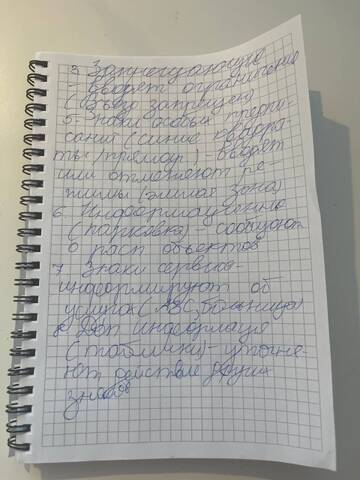 3 Запрещающие
- вводят ограничение
(Въезд запрещен)
5 - Знаки особых предпи-
саний (синие квадра-
ты/прямоуг) - вводят
или отменяют ре
жимы (жилая зона)
6 Информационные
(парковка) сообщают
о расп объектов
7 Знаки сервиса-
информируют об
услугах (АЗС, больница)
8 Доп информация
(таблички) - уточня-
ют действие других
знаков